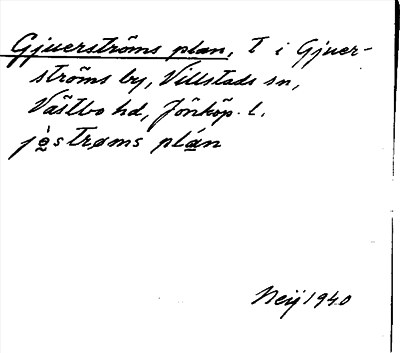 Gjuerströms plan, t i Gjuer-
ströms by, Villstads sn,
Västbo hd, Jönköp. l.
jèstrøms plán
Neij 1940